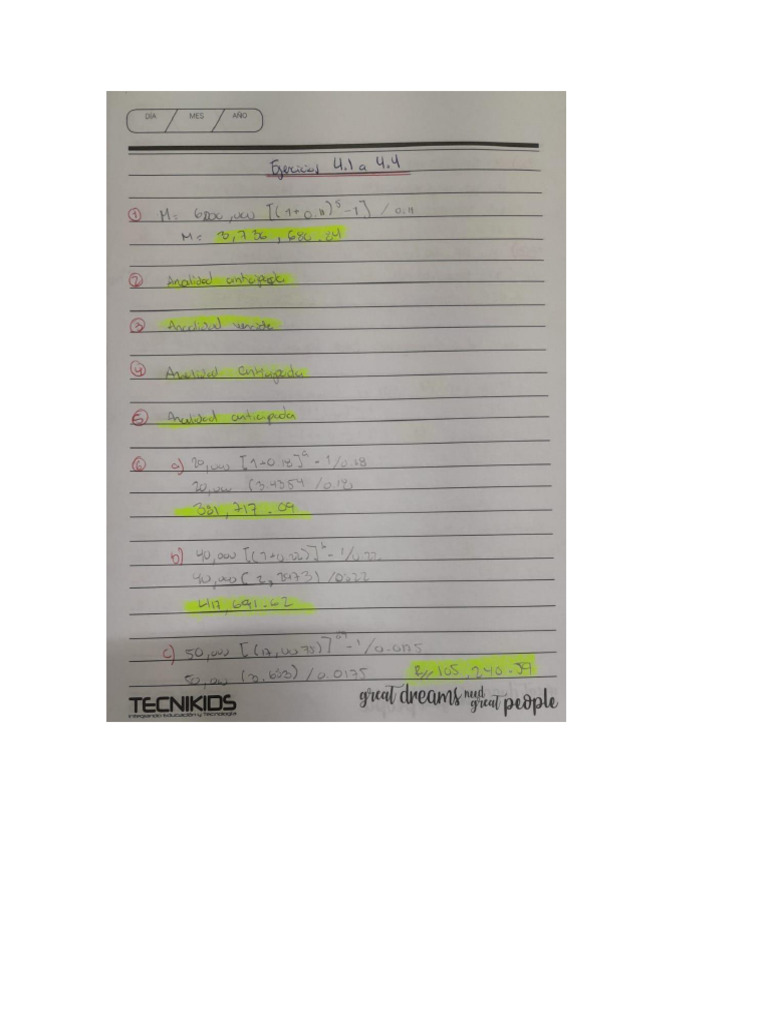 DÍA / MES / AÑO
Ejercicios 4.1 a 4.4
① M= ,000 [(1+0.11)⁵-1] / 0.11
M= 3,736,680.84
② Analidad anticipada
③ Analidad
④ Analidad anticipada
⑤ Analidad anticipada
⑥ a) 20,000 [1+0.18]⁹ - 1/0.18
20,000 (3.4354 /0.18
381,717.09
b) 40,000 [(1+0.22)]⁶ - 1/0.22
40,000 ( ) /0.22
417,691.62
c) 50,000 - 1/0.0175
50,000 /0.0175 R// 105,240.39
TECNIKIDS
Integrando Educación y Tecnología
great dreams need great people